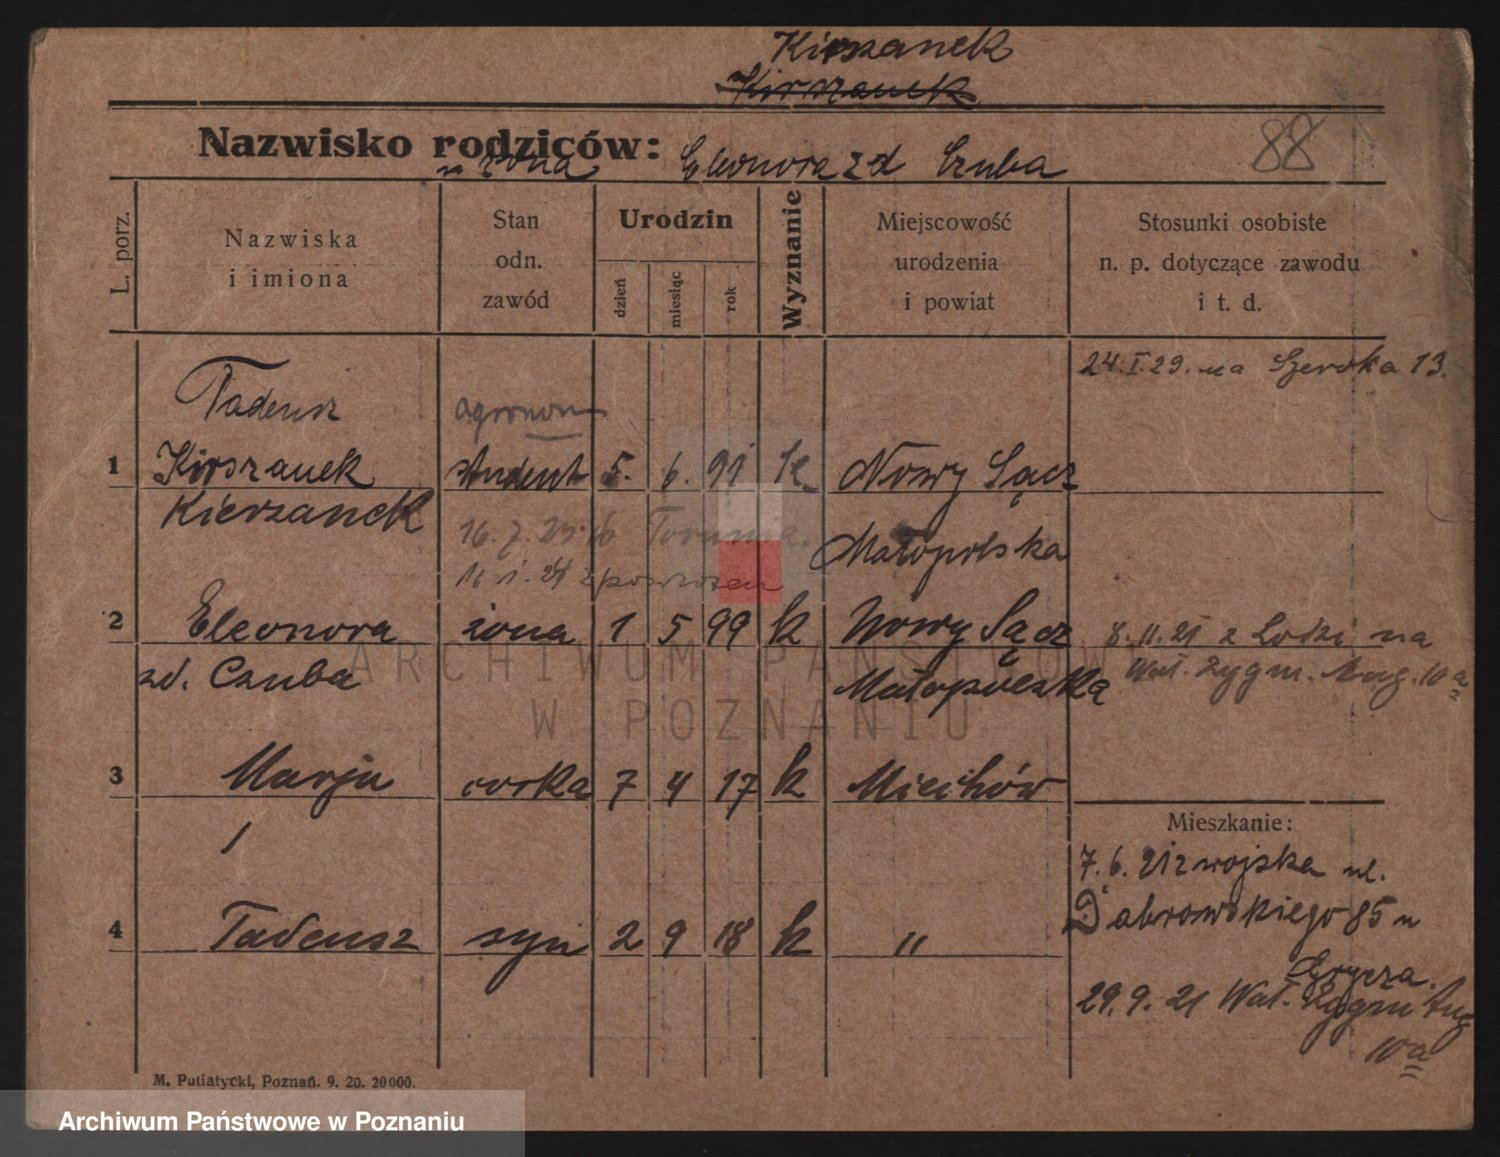 Kirszanek
Kirszanek
Nazwisko rodziców:
żona Eleonora zd Czuba
88
L. porz.
Nazwiska
i imiona
Stan
odn.
zawód
Urodzin
dzień
miesiąc
rok
Wyznanie
Miejscowość
urodzenia
i powiat
Stosunki osobiste
n. p. dotyczące zawodu
i t. d.
24.I.29. na Szeroka 13.
Tadeusz
agronom
1 Kirszanek student 5. 6. 91 k Nowy Sącz
Kierzanek
16. 7. 23. do Torunia.
Małopolska
16 1. 24 z powrotem
2 Eleonora żona 1 5 99 k Nowy Sącz
8. 11. 21 z Lodzi na
zd. Czuba
Małopolska
Wał. Zygm. Aug. 10 a
3 Marja corka 7 4 17 k Miechów
Mieszkanie:
7. 6. 21 z wojska ul.
Dabrowskiego 85 u
4 Tadeusz syn 2 9 18 k "
Grycza.
29. 9. 21 Wał. Zygm Aug
10 a
M. Putiatycki, Poznań. 9. 20. 20000.
ARCHIWUM PAŃSTWOWE
W POZNANIU
Archiwum Państwowe w Poznaniu